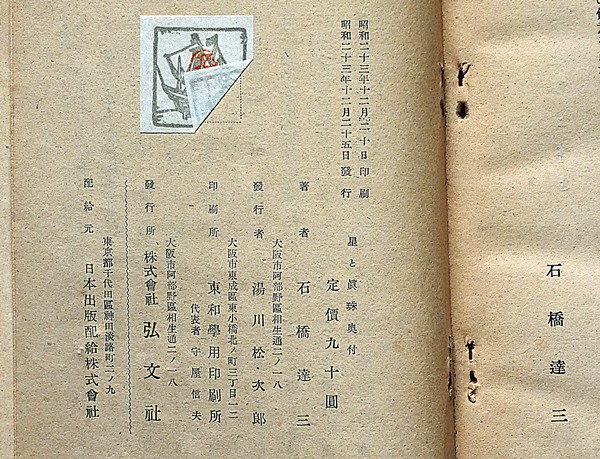 石橋達三
昭和二十三年十二月二十日印刷
昭和二十三年十二月二十五日發行
星と眞珠奥付
定價九十圓
著者 石橋達三
大阪市阿部野區相生通二ノ一八
發行者 湯川松次郎
大阪市東成區東小橋北ノ町三丁目一二
印刷所 東和學用印刷所
代表者 守屋信夫
大阪市阿部野區相生通二ノ一八
發行所 株式會社 弘文社
東京都千代田區神田淡路町二ノ九
配給元 日本出版配給株式會社